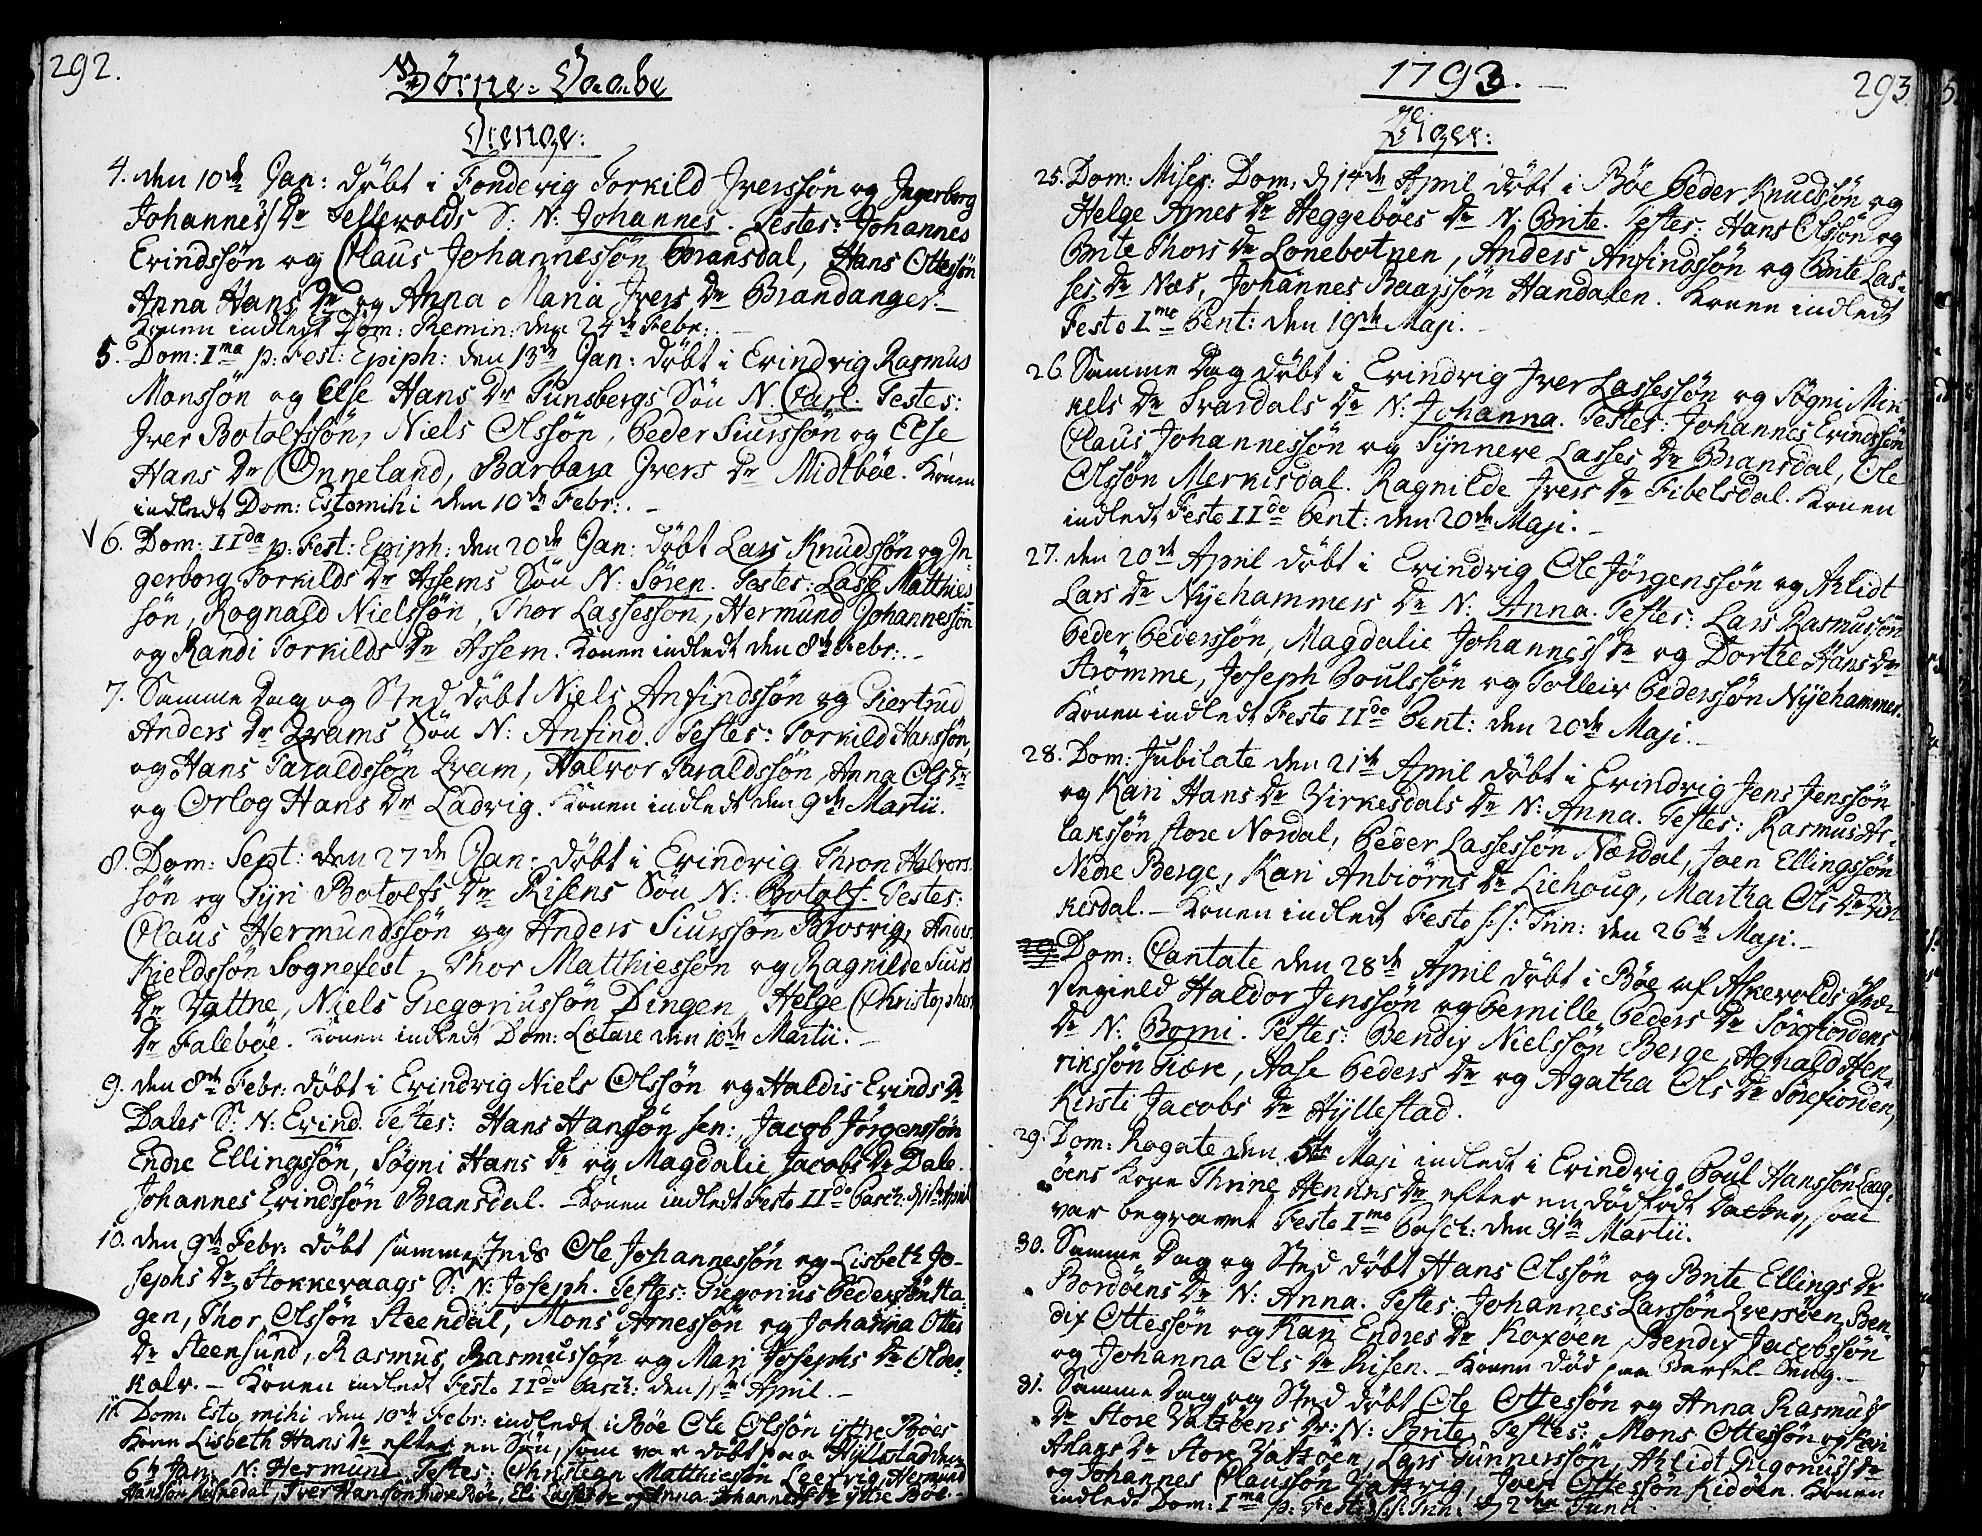 292.
Børne-Daabe
Drenge:
4. den 10de Jan: døbt i Fonderig Torkild Iverssøn og Ingerborg
Johannes Dr Tellevolds S: N: Johannes. Testes: Johannes
Erindssøn og Claus Johannessøn Bransdal, Hans Ottessøn
Anna Hans Dr og Anna Maria Ivers Dr Brandanger.
Konen indledt Dom: Remin: den 24de Febr:.
5. Dom: Ima p: Fest: Epiph: den 13de Jan: døbt i Erindvig Rasmus
Monssøn og Else Hans Dr Tunsbergs Søn N: Carl. Testes:
Iver Botolfssøn, Niels Olssøn, Peder Siurssøn og Else
Hans Dr Onneland, Barbara Ivers Dr Midtbøe. Konen
indledt Dom: Estomihi den 10de Febr:.
6. Dom: IIda p: Fest: Epiph: den 20de Jan: døbt Lars Knudssøn og In-
gerborg Torkilds Dr Assems Søn N: Søren. Testes: Lasse Matthies
søn, Rognald Nielssøn, Thor Lassessøn, Hermund Johannessøn
og Randi Torkilds Dr Assem. Konen indledt den 8de Febr:.
7. Samme Dag og Sted døbt Niels Anfindssøn og Giertrud
Anders Dr Qvams Søn N: Anfind. Testes: Torkild Hanssøn,
og Hans Taraldssøn Qvam, Halvor Taraldssøn, Anna Ols Dr
og Orlog Hans Dr Ladvig. Konen indledt den 9de Martii.
8. Dom: Sept: den 27de Jan: døbt i Erindvig Thron Halvors
søn og Tyri Botolfs Dr Risens Søn N: Botolf. Testes:
Claus Hermundssøn og Anders Siurssøn Risvig, Anders
Kieldssøn Sognefest, Thor Matthiessøn og Ragnilde Siurs
Dr Vattne, Niels Gregoriussøn Dingen, Helge Christophers
Dr Falebøe. Konen indledt Dom: Lætare den 10de Martii.
9. den 8de Febr: døbt i Erindvig Niels Olssøn og Haldis Erinds Dr
Dales S: N: Erind. Testes: Hans Hanssøn sen:, Jacob Jørgenssøn
Endre Ellingssøn, Søgni Hans Dr og Magdalie Jacobs Dr Dale.
Johannes Erindssøn Bransdal. Konen indledt Festo IIdo Pasch: d 1ste April
10. den 9de Febr: døbt sammesteds Ole Johannessøn og Lisbeth Jo-
sephs Dr Stokkevaags S: N: Joseph. Testes: Gregorius Pederssøn Ha-
gen, Thor Olssøn Steendal, Mons Arnessøn og Johanna Ottes
Dr Steensund, Rasmus Rasmussøn og Mari Josephs Dr Olden
kalv. Konen indledt Festo IIdo Pasch: den 1ste April.
11. Dom: Estomihi den 10de Febr: indledt i Bøe Ole Olssøn yttre Bøes
Kone Lisbeth Hans Dr efter en Søn, som var døbt paa Hyllestad den
6te Jan: N: Hermund. Testes: Christian Matthiessøn Leervig, Hermund
Hanssøn Risnedal, Iver Hanssøn Indre Bøe, Eli Lasses Dr og Anna Johannes Dr yttre Bøe.
1793.
293
Piger:
25. Dom: Miser: Dom, d 14de April døbt i Bøe Peder Knudssøn og
Helge Arnes Dr Heggebøes Dr N: Brite. Testes: Hans Olssøn og
Brite Thors Dr Lonebotnen, Anders Anfindssøn og Brite Las-
ses Dr Næs, Johannes Baarssøn Handalen. Konen indledt
Festo Imo Pent: den 19de Maji.
26. Samme Dag døbt i Erindvig Iver Lassessøn og Søgni Mik-
kels Dr Svardals Dr N: Johanna. Testes: Johannes Erindssøn
Claus Johannessøn og Synneve Lasses Dr Bransdal, Ole
Olssøn Merkisdal. Ragnilde Ivers Dr Fibelsdal. Konen
indledt Festo IIdo Pent: den 20de Maji.
27. den 20de April døbt i Erindvig Ole Jørgenssøn og Aklidt
Lars Dr Nyehammers Dr N: Anna. Testes: Lars Rasmussøn
Peder Pederssøn, Magdalie Johannes Dr og Dorthe Hans Dr
Strømme, Joseph Poulssøn og Tolleiv Pederssøn Nyehammer.
Konen indledt Festo IIdo Pent: den 20de Maji.
28. Dom: Jubilate den 21de April døbt i Erindvig Jens Jenssøn
og Kari Hans Dr Virkesdals Dr N: Anna. Testes: Rasmus As-
lakssøn store Nordal, Peder Lassessøn Nordal, Joen Ellingssøn
Nedre Berge, Kari Anbiørns Dr Liehoug, Martha Ols Dr Vir
kisdal. Konen indledt Festo S: S: Trin: den 26de Maji.
29. Dom: Cantate den 28de April døbt i Bøe af Akevolds Præ-
stegield Haldor Jenssøn og Pernille Peders Dr Sørefiordens
Dr N: Borni. Testes: Bendix Nielssøn Berge, Agnald Hen-
rikssøn Tiøre, Aase Peders Dr og Agatha Ols Dr Sørefiorden,
Kirsti Jacobs Dr Hyllestad.
29. Dom: Rogate den 5te Maji indledt i Erindvig Poul Hanssøn Laag-
øens Kone Thrine Henriks Dr efter en dødfødt Datter, som
var begravet Festo Imo Pasch: den 31te Martii.
30. Samme Dag og Sted døbt Hans Olssøn og Brite Ellings Dr
Bordøens Dr N: Anna. Testes: Johannes Larssøn Qversøen, Ben-
dix Ottessøn og Kari Endres Dr Koxøen, Bendix Jacobssøn
og Johanna Ols Dr Risen. Konen død paa Barsel-Seng.
31. Samme Dag og Sted døbt Ole Ottessøn og Anna Rasmus
Dr Store Vatsøens Dr: N: Brite. Testes: Mons Ottessøn og Kari
Aslaks Dr Store Vatsøen, Lars Gunnerssøn, Aklidt Gregorius Dr
og Johannes Claussøn Vattvig, Iver Ottessøn Kidøen. Konen
indledt Dom: Ima p: Festo S: S: Trin: d 2den Junii